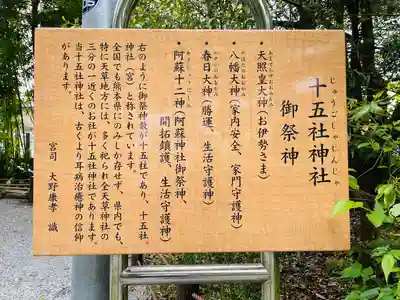 じゅうごしゃじんじゃ
十五社神社
御祭神
・天照皇大神(お伊勢さま)
・八幡大神(家内安全、家門守護神)
・春日大神(勝運、生活守護神)
・阿蘇十二神(阿蘇神社御祭神、
開拓鎮護、生活守護神)
右のように御祭神数が十五社であり、十五社。
神社(宮)と称されています。
全国でも熊本県にのみしか存せず、県内でも、
特に天草地方には、多く祀られ全天草神社の
三分の一近くのお社が十五社神社であります。
当十五社神社は、古くより耳病治癒神の信仰
があります。
宮司 大野康孝 識